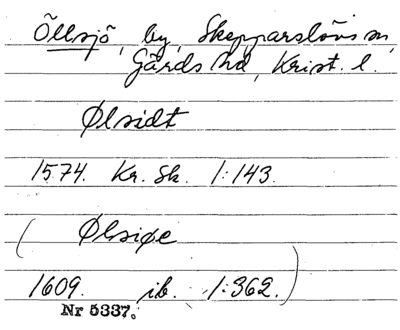 Öllsjö, by, Skepparslövs sn,
Gärds hd, Krist. l.
Ølsidt
1574. Kr. Sk. 1:143.
( Ølsiøe
1609. ib. 1:362. )
Nr 5337.